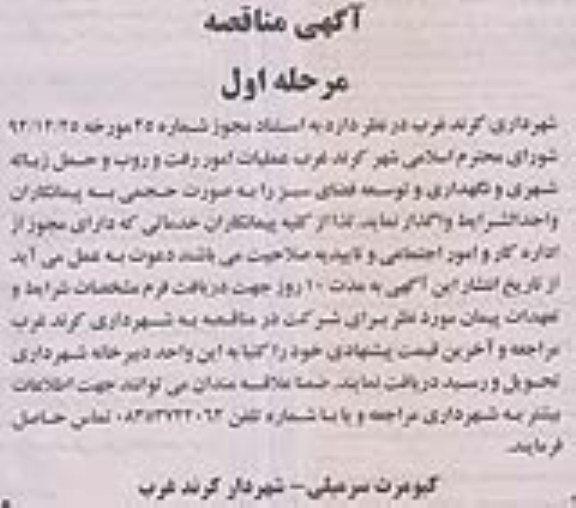 آگهی مناقصه
مرحله اول
شهرداری کرند غرب در نظر دارد به استناد مجوز شماره ۲۵ مورخه ۹۲/۱۲/۲۵
شورای محترم اسلامی شهر کرند غرب عملیات امور رفت و روب و حمل زباله
شهری و نگهداری و توسعه فضای سبز را به صورت حجمی به پیمانکاران
واجدالشرایط واگذار نماید. لذا از کلیه پیمانکاران خدماتی که دارای مجوز از
اداره کار و امور اجتماعی و تاییدیه صلاحیت می باشند دعوت به عمل می آید
از تاریخ انتشار این آگهی به مدت ۱۰ روز جهت دریافت فرم مشخصات شرایط و
تعهدات پیمان مورد نظر برای شرکت در مناقصه به شهرداری کرند غرب
مراجعه و آخرین قیمت پیشنهادی خود را کتبا به این واحد دبیرخانه شهرداری
تحویل و رسید دریافت نمایند. ضمنا علاقه مندان می توانند جهت اطلاعات
بیشتر به شهرداری مراجعه و یا با شماره تلفن تماس حاصل
فرمایند.
کیومرث سرمیلی - شهردار کرند غرب